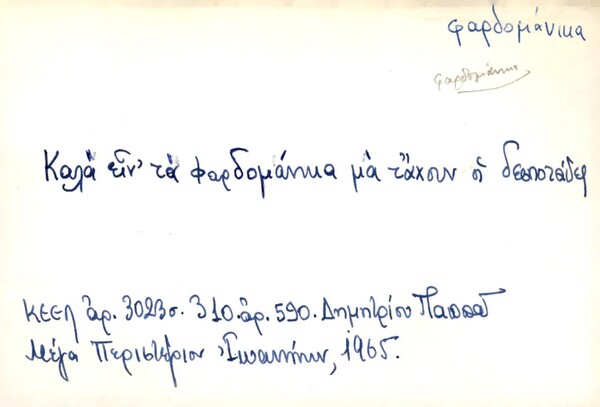 φαρδομάνικα
φαρδομάνικα
Καλὰ εἶν' τὰ φαρδομάνικα μὰ τἄχουν οἱ δεσποτάδες
ΚΕΕΛ ἀρ. 3023 σ. 310. ἀρ. 590. Δημητρίου Παππᾶ
Μέγα Περιστέριον Ἰωαννίνων, 1965.